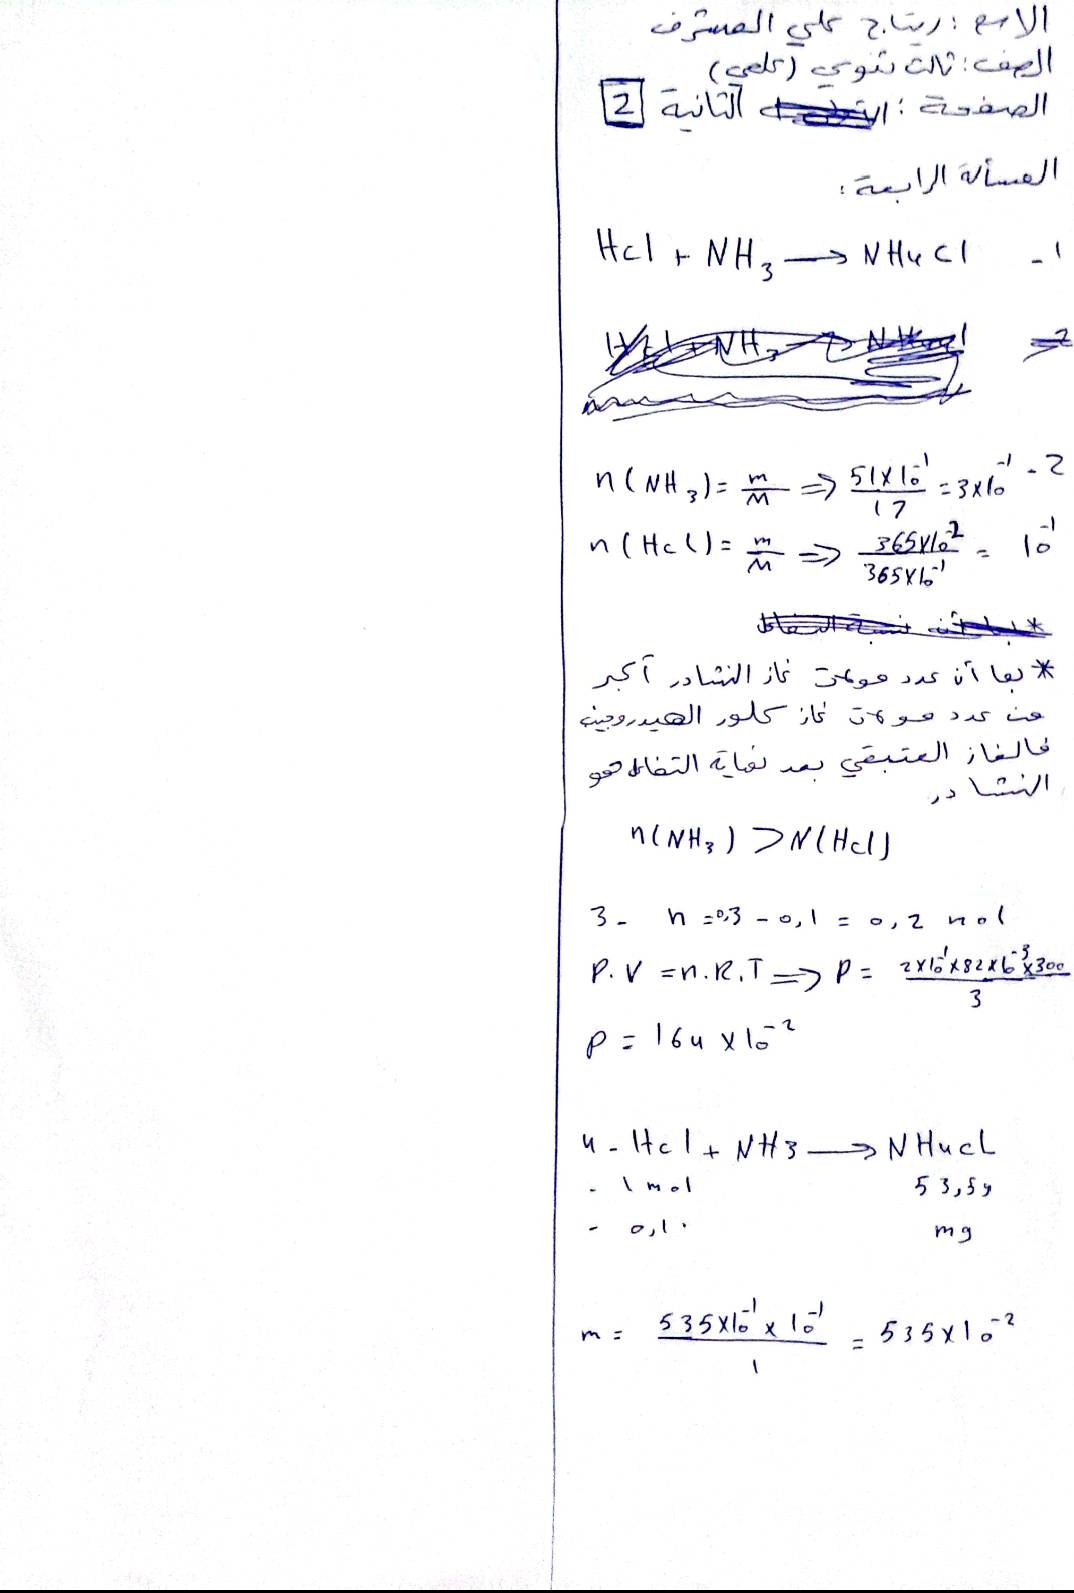 الاسم : ريتاج علي المشرف
الصف : ثالث ثنوي (علمي)
الصفحة : الثانية 2
المسألة الرابعة :
1- Hcl + NH3 → NH4Cl
2- n(NH3) = m/M ⇒ 51×10⁻¹/17 = 3×10⁻¹
n(Hcl) = m/M ⇒ 365×10⁻²/365×10⁻¹ = 10⁻¹
* بما أن عدد مولات غاز النشادر أكبر
من عدد مولات غاز كلور الهيدروجين
فالغاز المتبقي بعد نهاية التفاعل هو
النشادر
n(NH3) > N(Hcl)
3- n = 0,3 - 0,1 = 0,2 mol
P.V = n.R.T ⇒ P = 2×10⁻¹×82×10⁻³×300/3
P = 164×10⁻²
4- Hcl + NH3 → NH4cL
- 1 mol 53,5g
- 0,1 mg
m = 535×10⁻¹×10⁻¹/1 = 535×10⁻²